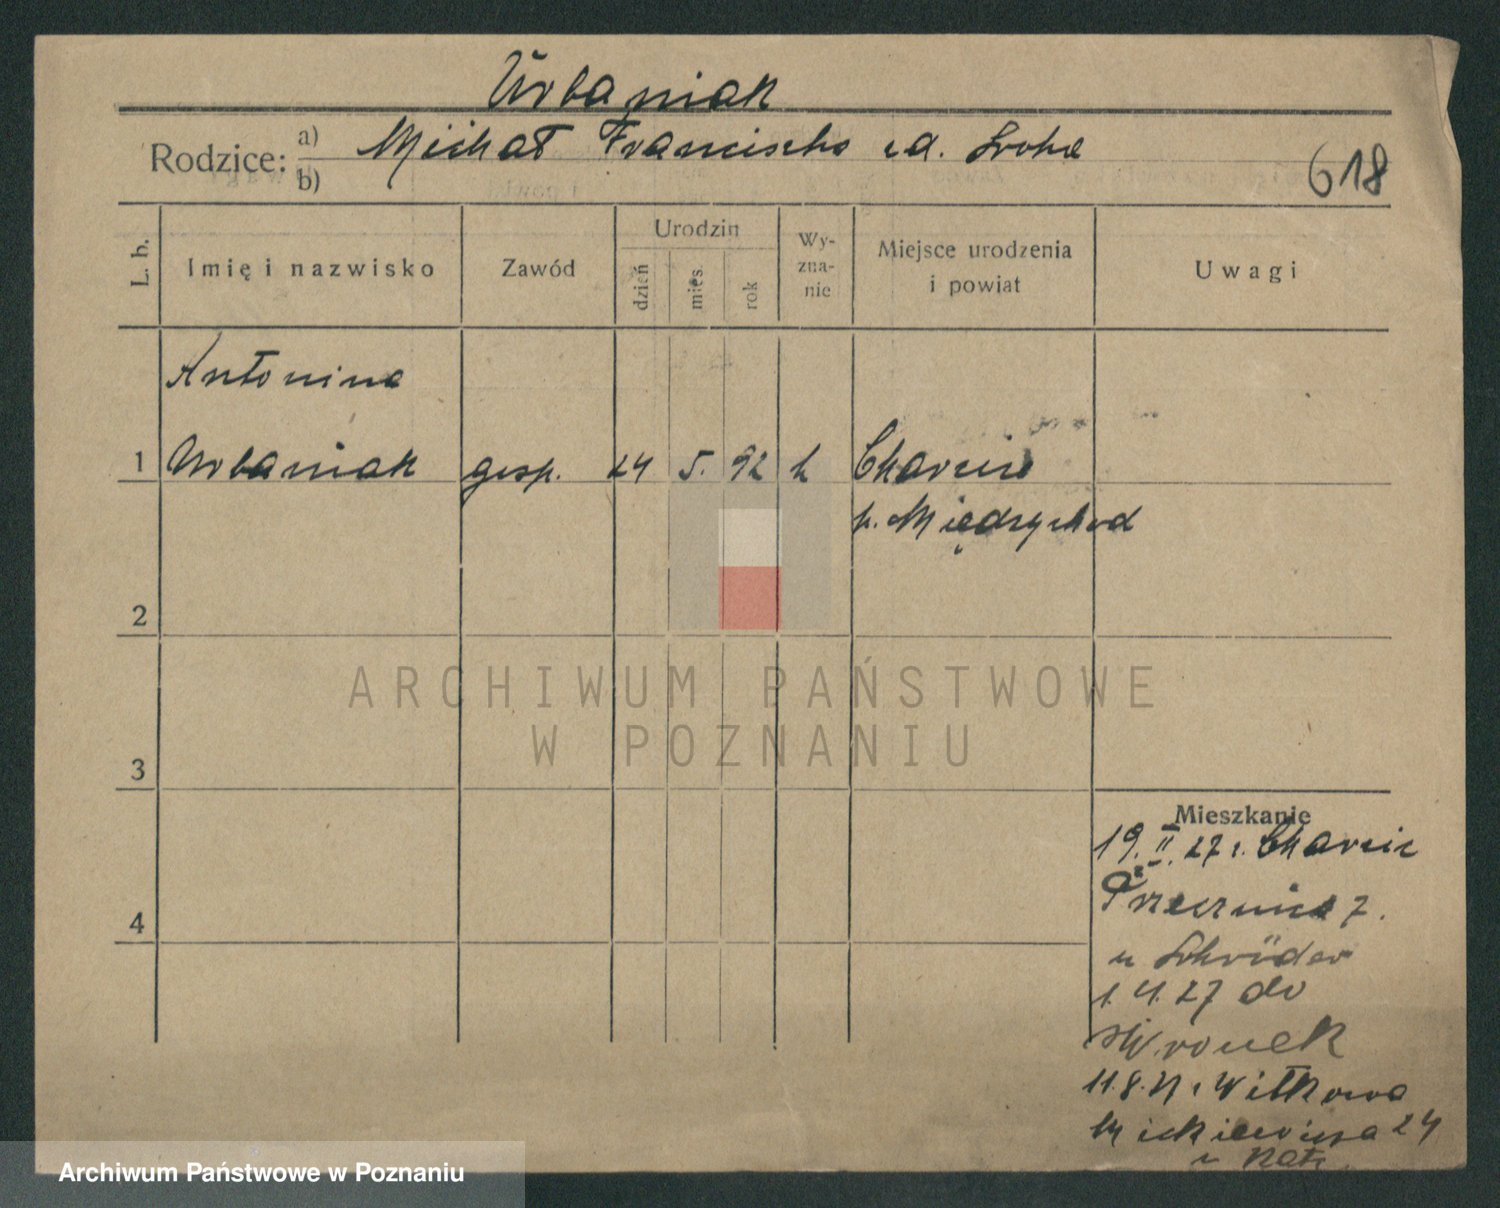 Urbaniak
Rodzice: a) Michał Franciszka z d. Sroka
b)
618
L. b.
Imię i nazwisko
Zawód
Urodzin
dzień
mies.
rok
Wy-
zna-
nie
Miejsce urodzenia
i powiat
Uwagi
Antonina
1 Urbaniak gosp. 24 5. 92 k Charcic
p. Międzychod
2
3
4
ARCHIWUM PAŃSTWOWE
W POZNANIU
Mieszkanie
19. II. 27 z. Charcic
7.
u Schröder
1. 4. 27 do
Wronek
11. 8. z Witkowa
Mickiewicza 24
u
Archiwum Państwowe w Poznaniu